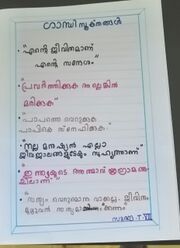 ഗാന്ധി സൂക്തങ്ങൾ
"എന്റെ ജീവിതമാണ്
എന്റെ സന്ദേശം"
"പ്രവർത്തിക്കുക അല്ലെങ്കിൽ
മരിക്കുക"
"പാപത്തെ വെറുക്കുക
പാപിയെ സ്നേഹിക്കുക"
"നല്ല മനുഷ്യൻ എല്ലാ
ജീവജാലങ്ങളുടേയും സുഹൃത്താണ്"
"ഇന്ത്യയുടെ ആത്മാവ് ഗ്രാമങ്ങ
ളിലാണ്"
"സത്യം വെറുമൊരു വാക്കല്ല. ജീവിതം
മുഴുവൻ സത്യമാക്കണം"